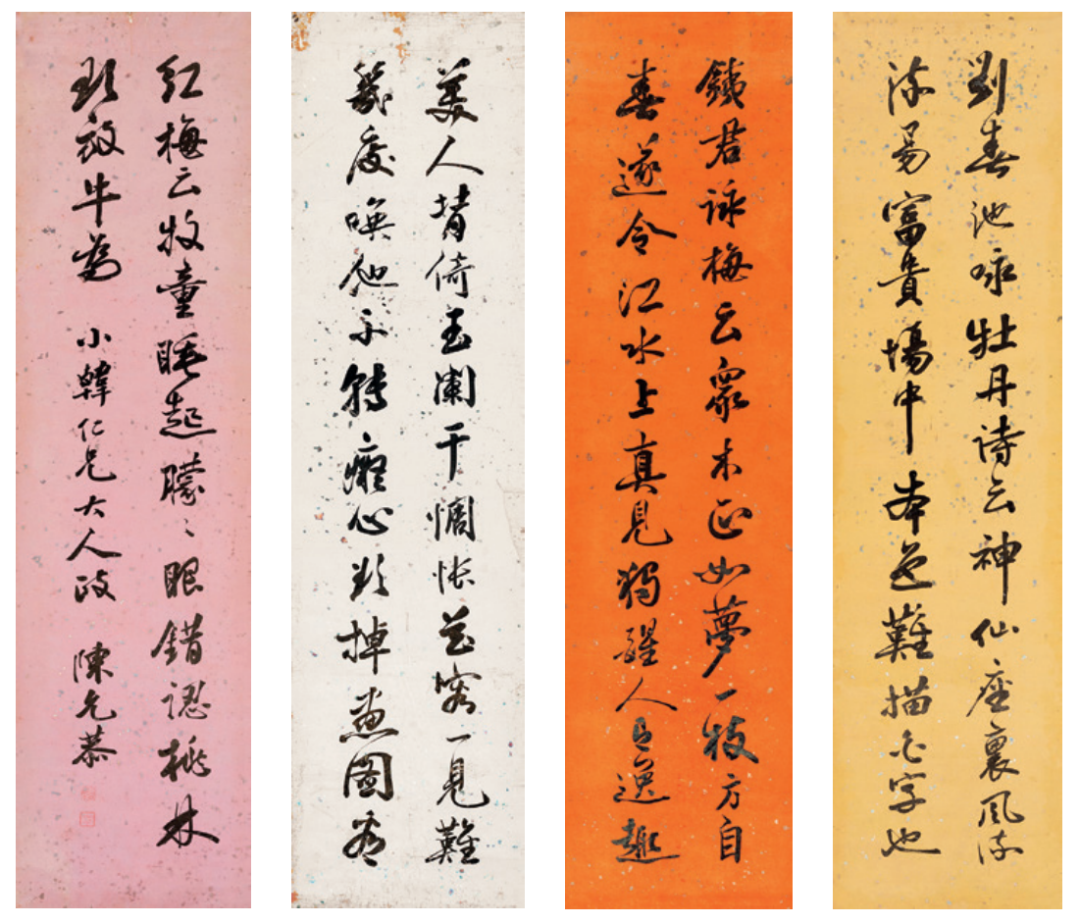 劉春池咏牡丹诗云神仙座裏風流
流易富貴場中本色難描字也
鐵君詠梅云衆木正如夢一枝方自
春遂令江水上真見獨醒人逸趣
美人背倚玉闌干惆悵花容一見難
幾度喚他不轉癡心欲掉畫圖看
紅梅云牧童睡起朦〻眼錯認桃林
欲放牛為 小韓仁兄大人政 陳允恭